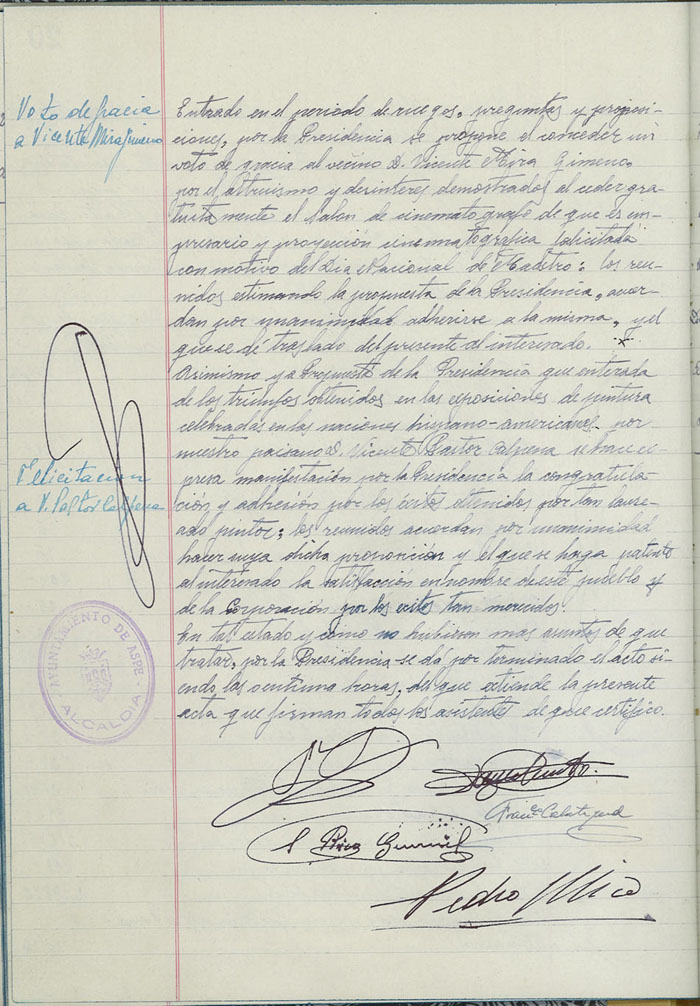 Voto de gracia
a Vicente Mira Gimeno
Entrado en el periodo de ruegos, preguntas y proposi-
ciones, por la Presidencia se propone el conceder un
voto de gracia al vecino D. Vicente Mira Gimeno,
por el altruismo y desinteres demostrados al ceder gra-
tuitamente el Salon de cinematografo de que es em-
presario y proyección cinematografica solicitada
con motivo del Dia Nacional de Maestro: los reu-
nidos estimando la propuesta de la Presidencia, acuer-
dan por unanimidad adherirse a la misma, y el
que se dé traslado del presente al interesado.
Asimismo y a Propuesta de la Presidencia que enterada
de los triunfos obtenidos en las exposiciones de pintura
celebradas en las naciones hispano-americanas por
nuestro paisano D. Vicente Pastor Calpena se hace ex-
presa manifestación por la Presidencia la congratula-
ción y adhesión por los éxitos obtenidos por tan laure-
ado pintor: los reunidos acuerdan por unanimidad
hacer suya dicha proposición y el que se haga patente
al interesado la satisfacción en nombre de este pueblo y
de la Corporación por los exitos tan merecidos.
En tal estado y como no hubieron mas asuntos de que
tratar, por la Presidencia se dá por terminado el acto si-
endo las veintiuna horas, del que extiende la presente
acta que firman todos los asistentes de que certifico.
Felicitación
a V. Pastor Calpena
AYUNTAMIENTO DE ASPE
ALCALDIA
Calatayud
Pedro Mira